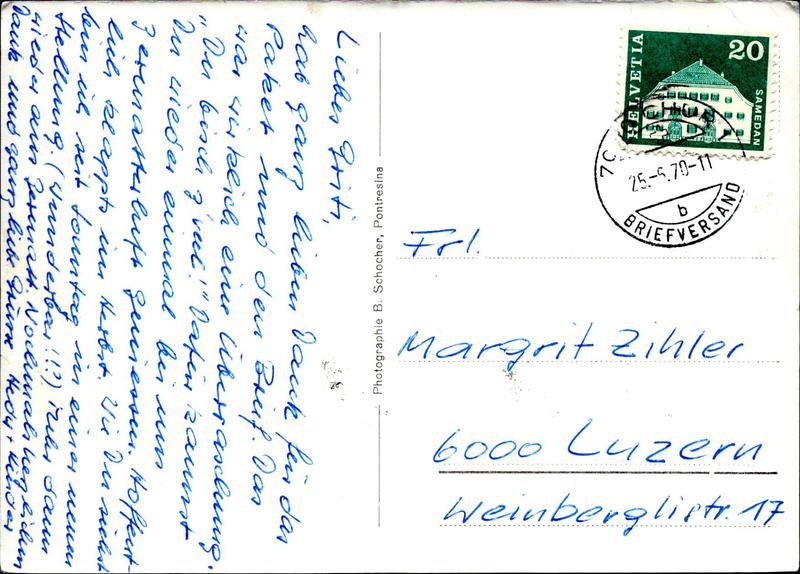 Liebes Griti,
hab ganz lieben Dank für das
Paket und den Brief. Das
war wirklich eine Überraschung.
"Du bisch z'viel!" Dafür kannst
Du wieder einmal bei uns
Zermatterluft geniessen. Hoffent-
lich klappts im Herbst. Wie Du siehst
bin ich seit Sonntag in einer neuen
Stellung. (Wunderbar!!?) Mehr dann
wieder aus Zermatt. Nochmals herzlichen
Dank und ganz liebe Grüsse Hedy + Kinder
Photographie B. Schocher, Pontresina
HELVETIA
20
SAMEDAN
25.-6.70-11
b
BRIEFVERSAND
Frl.
Margrit Zihler
6000 Luzern
Weinberglistr. 17